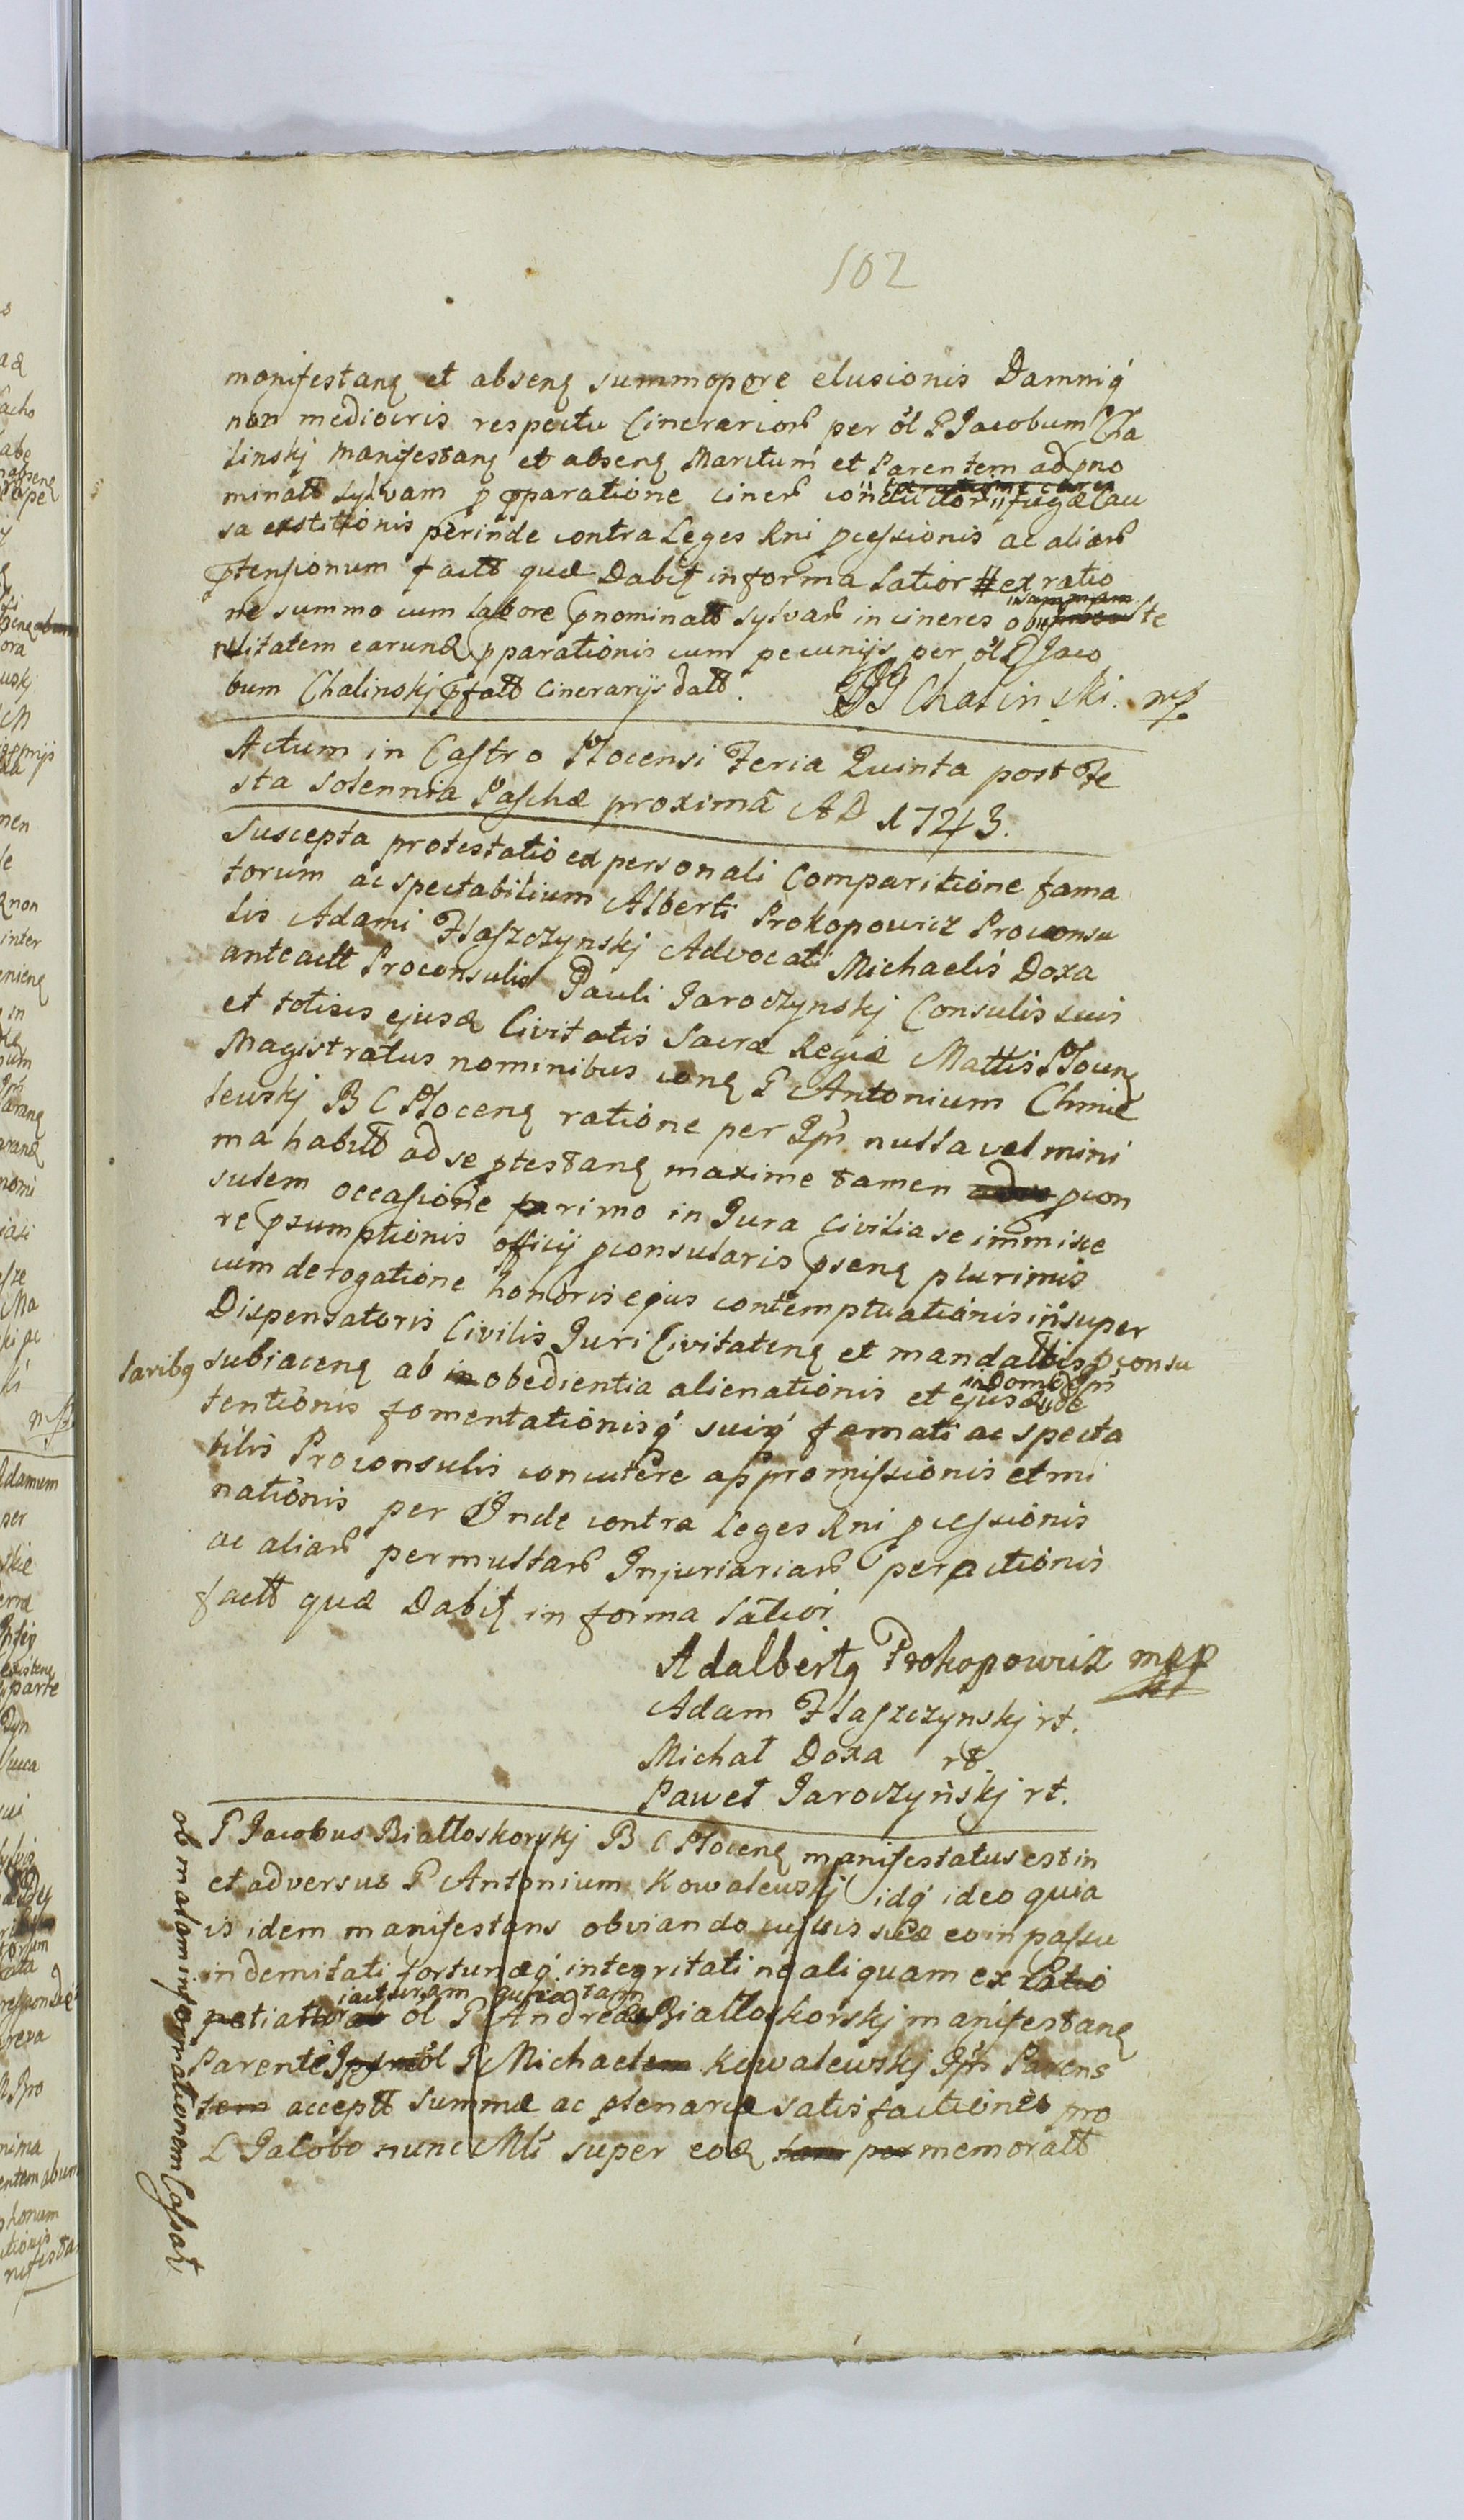 102
manifestanꝫ et absenꝫ summopere elusionis Damniq́
non mediocris respectu Cinerarioꝝ per ol P Jacobum Cha
linskj manifestanꝫ et absenꝫ Maritum et Parentem ad pno
minatt sylvam pparatione cineꝝ conductor fugæ Cau
sa exstitionis perinde contra Leges Rni pcessionis ac aliaꝝ
ptensionum factt quæ Dabiꝫ in forma latior # ex ratio
ne summo cum labore pnominatt sylvaꝝ in cineres ob ste
rilitatem earunꝺ pparationis cum pecunijs per ol P Jaco
bum Chalinskj pfatt Cinerarijs datt. Chalinski mp
Actum in Castro Plocensi Feria Quinta post Fe
sta Solennia Paschæ proximā A D 1743.
Suscepta protestatio ex personali Comparitione fama
torum ac spectabilium Alberti Prokopowicz Proconsu
lis Adami Flaszczynskj Advocati Michaelis Doxa
anteactt Proconsulis Pauli Jaroczynskj Consulis suis
et totius ejusꝺ Civitatis Sacræ Regiæ Mattis Plocenꝫ
Magistratus nominibus conꝫ P Antonium Chmie
lewskj B C Plocenꝫ ratione per Ipm̄ nulla vel mini
ma habitt ad se ptestanꝫ maxime tamen pcon
sulem occasione parimo in Jura Civilia se immisce
re psumptionis officij pconsularis psenꝫ plurimis
cum derogatione honoris ejus contemptuationis insuper
Dispensatoris Civilis Juri Civitatenꝫ et mandattis pconsu
laribꝫ subjacenꝫ ab in obedientia alienationis et ejusꝺ in Domo Ipm̄ de
tentionis fomentationisq́ suiq́ famati ac specta
bilis Proconsulis concutere appromissionis et mi
nationis per Inde contra Leges Rni pcessionis
ac aliaꝝ permultaꝝ Injuriariaꝝ peractionis
factt quæ Dabiꝫ in forma lativi
Adalbertꝫ Prokopowicz mpp
Adam Flaszczynskj rt.
Michał Doxa rt.
Paweł Jaroczyńskj rt.
P Jacobus Białłoskorskj B C Plocenꝫ manifestatus est in
et adversus P Antonium Kowalewskj idq́ ideo quia
is idem manifestans obviando cujusvis suæ eo in passu
indemitati fortunæq́ integritati ne aliquam ex ratio
jacturam
ol P Andreæ Białłoskorskj manifestanꝫ
Parente ol P Michaelem Kowalewskj Ipm̄ Parens
tem acceptt summæ ac plenariæ satisfactionis pro
L Jacobo nunc Mli super eoꝺ memoratt
ob malam informationem Cassat